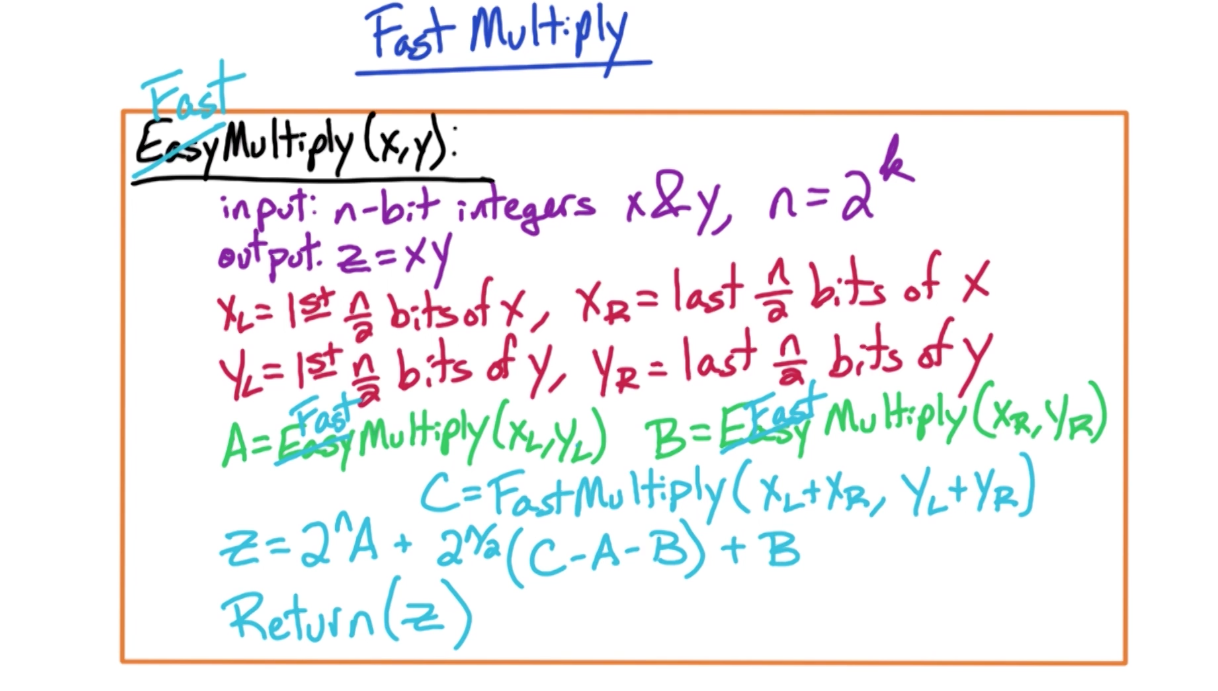 Fast Multiply
Fast
EasyMultiply(x,y):
input: n-bit integers x&y, n=2^k
output: z=xy
x_L=1st n/2 bits of x, x_R=last n/2 bits of x
y_L=1st n/2 bits of y, y_R=last n/2 bits of y
Fast Fast
A=EasyMultiply(x_L,y_L) B=EasyMultiply(x_R,y_R)
C=FastMultiply(x_L+x_R, y_L+y_R)
z=2^n A + 2^(n/2)(C-A-B)+B
Return(z)